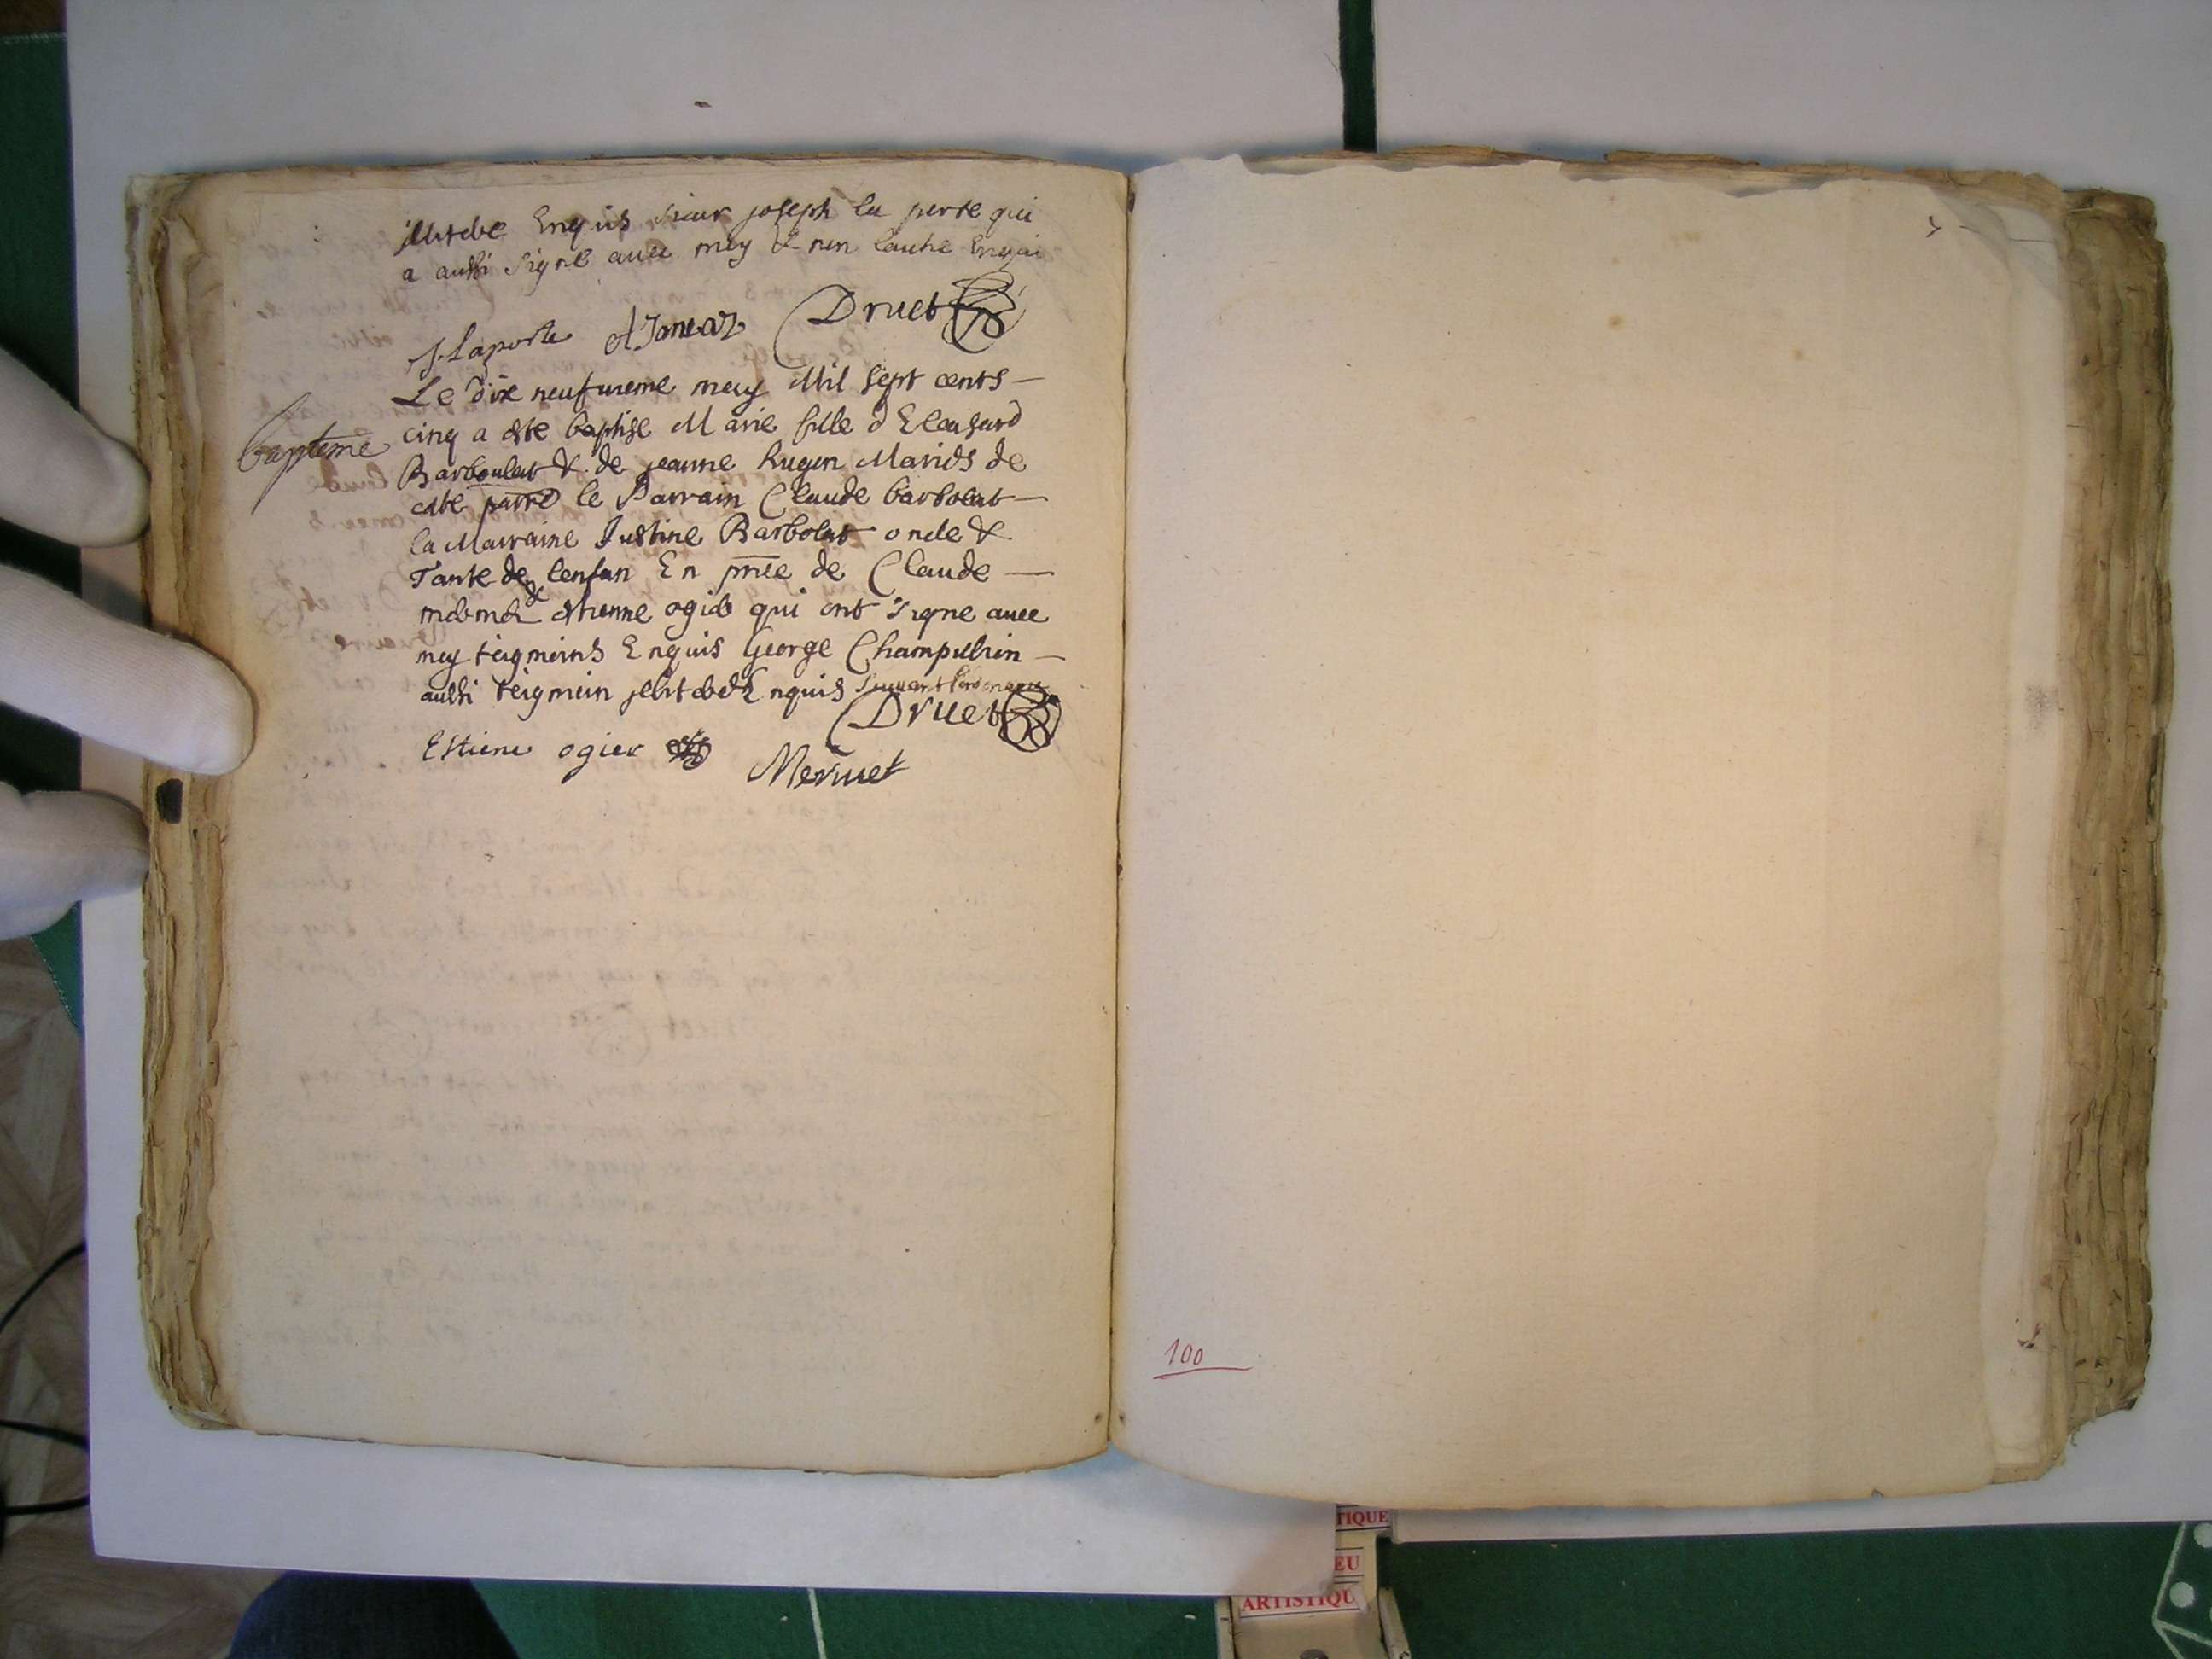 illitebe Enquis sieur joseph la porte qui
a aussi signé avec moy & non lautre Enquis
J. Laporte Druet
Le dix neufvieme may Mil sept cents
baptême
cinq a este baptise Marie fille d Eleasard
Barboulat & de jeanne hugon Mariés de
cette parre le Parrain Claude barbolat
la Marraine Justine Barbolat oncle &
Tante de lenfan En pnce de Claude
& etienne ogié qui ont signe avec
moy teigmoins Enquis George Champ
aussi teigmoin Enquis suivant
Druet
Estiene ogier
Mermet
100
TIQUE
EU
ARTISTIQU